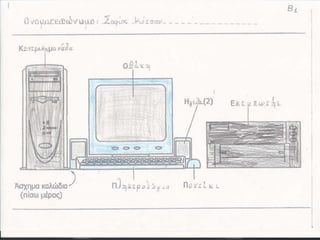 Β
Ονοματεπώνυμο: Σοφία
Οθόνη
Ηχεία(2)
Εκτυπωτής
Άσχημα καλώδια
(πίσω μέρος)
Πληκτρολόγιο Ποντίκι